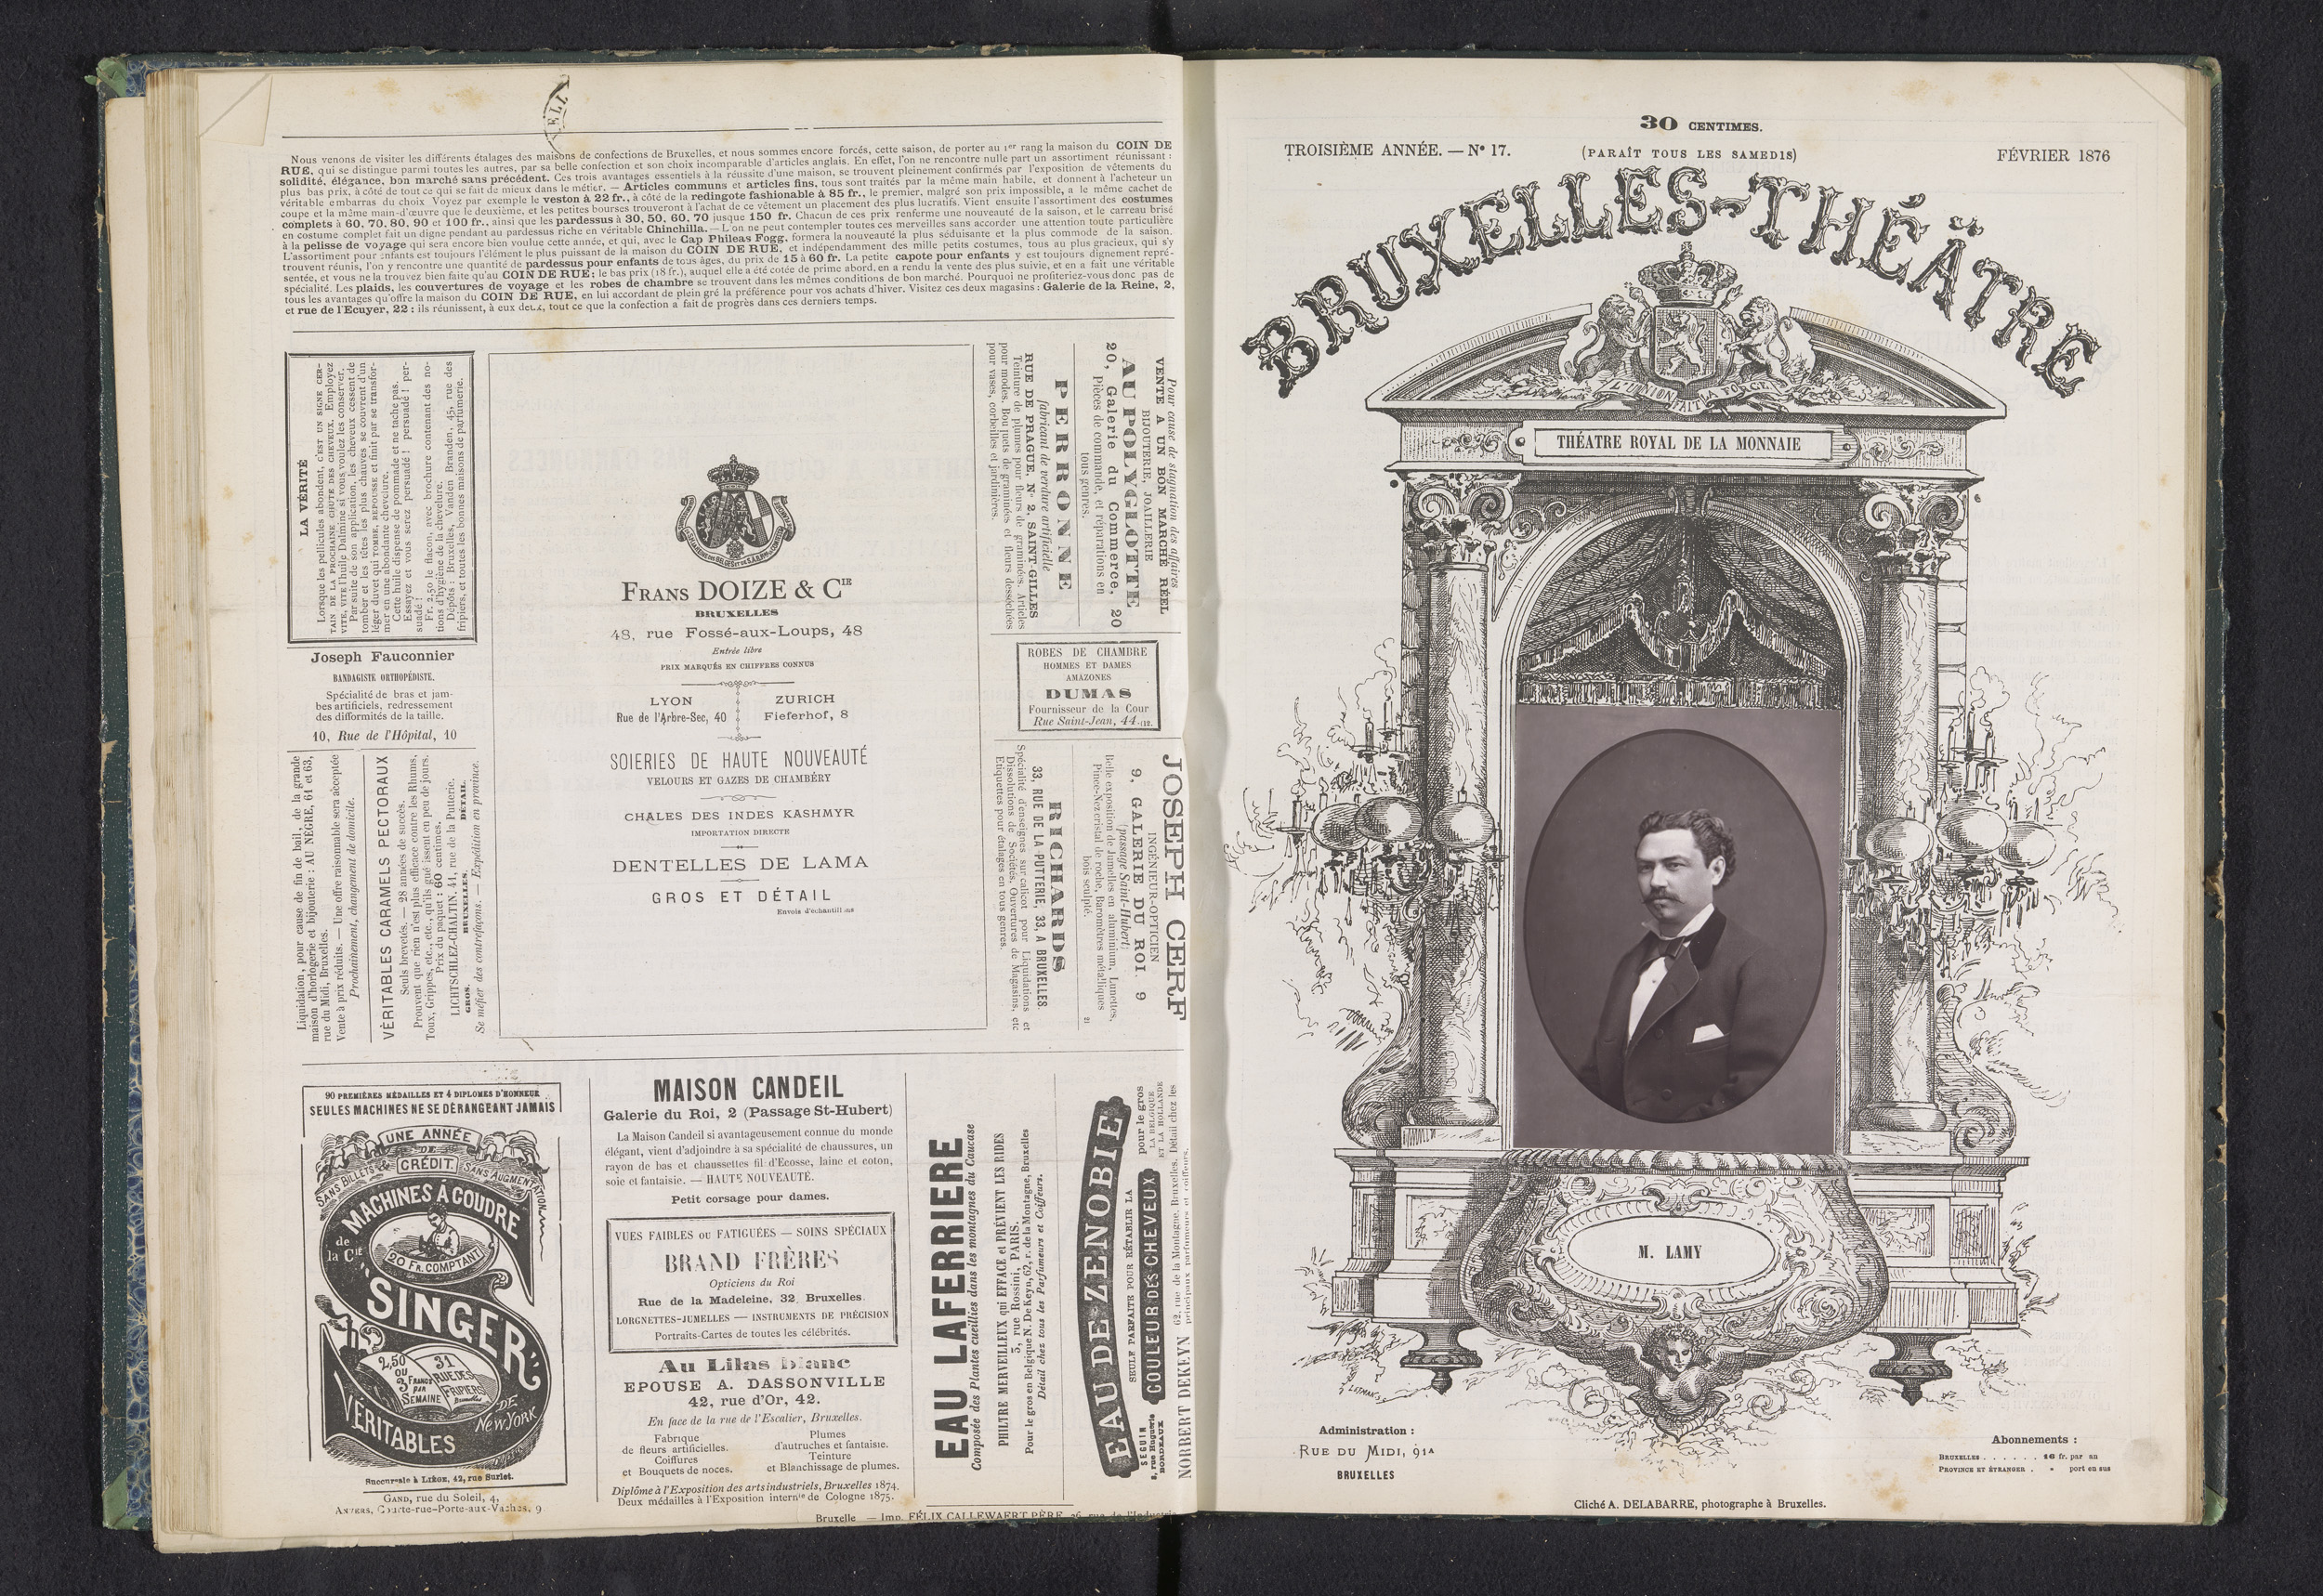 Nous venons de visiter les différents étalages des maisons de confections de Bruxelles, et nous sommes encore forcés, cette saison, de porter au 1er rang la maison du COIN DE
RUE, qui se distingue parmi toutes les autres, par sa belle confection et son choix incomparable d'articles anglais. En effet, l'on ne rencontre nulle part un assortiment réunissant :
solidité, élégance, bon marché sans précédent. Ces trois avantages essentiels à la réussite d'une maison, se trouvent pleinement confirmés par l'exposition de vêtements du
plus bas prix, à côté de tout ce qui se fait de mieux dans le métier. — Articles communs et articles fins, tous sont traités par la même main habile, et donnent à l'acheteur un
véritable embarras du choix Voyez par exemple le veston à 22 fr., à côté de la redingote fashionable à 85 fr., le premier, malgré son prix impossible, a le même cachet de
coupe et la même main-d'œuvre que le deuxième, et les petites bourses trouveront à l'achat de ce vêtement un placement des plus lucratifs. Vient ensuite l'assortiment des costumes
complets à 60, 70, 80, 90 et 100 fr., ainsi que les pardessus à 30, 50, 60, 70 jusque 150 fr. Chacun de ces prix renferme une nouveauté de la saison, et le carreau brisé
en costume complet fait un digne pendant au pardessus riche en véritable Chinchilla. — L'on ne peut contempler toutes ces merveilles sans accorder une attention toute particulière
à la pelisse de voyage qui sera encore bien voulue cette année, et qui, avec le Cap Phileas Fogg, formera la nouveauté la plus séduisante et la plus commode de la saison.
L'assortiment pour enfants est toujours l'élément le plus puissant de la maison du COIN DE RUE, et indépendamment des mille petits costumes, tous au plus gracieux, qui s'y
trouvent réunis, l'on y rencontre une quantité de pardessus pour enfants de tous âges, du prix de 15 à 60 fr. La petite capote pour enfants y est toujours dignement repré-
sentée, et vous ne la trouvez bien faite qu'au COIN DE RUE; le bas prix (18 fr.), auquel elle a été cotée de prime abord, en a rendu la vente des plus suivie, et en a fait une véritable
spécialité. Les plaids, les couvertures de voyage et les robes de chambre se trouvent dans les mêmes conditions de bon marché. Pourquoi ne profiteriez-vous donc pas de
tous les avantages qu'offre la maison du COIN DE RUE, en lui accordant de plein gré la préférence pour vos achats d'hiver. Visitez ces deux magasins : Galerie de la Reine, 2,
et rue de l'Ecuyer, 22 : ils réunissent, à eux deux, tout ce que la confection a fait de progrès dans ces derniers temps.
LA VÉRITÉ
Lorsque les pellicules abondent, C'EST UN SIGNE CER-
TAIN DE LA PROCHAINE CHUTE DES CHEVEUX. Employez
VITE, VITE l'huile Dalmine si vous voulez les conserver.
Par suite de son application, les cheveux cessent de
tomber et les têtes les plus chauves se couvrent d'un
léger duvet qui TOMBE, REPOUSSE et finit par se transfor-
mer en une abondante chevelure.
Cette huile dispense de pommade et ne tache pas.
Essayez et vous serez persuadé ! persuadé ! per-
suadé !
Fr. 2,50 le flacon, avec brochure contenant des no-
tions d'hygiène de la chevelure.
Dépôts : Bruxelles, Vanden Branden, 45, rue des
fripiers, et toutes les bonnes maisons de parfumerie.
Joseph Fauconnier
BANDAGISTE ORTHOPÉDISTE.
Spécialité de bras et jam-
bes artificiels, redressement
des difformités de la taille.
10, Rue de l'Hôpital, 10
Liquidation, pour cause de fin de bail, de la grande
maison d'horlogerie et bijouterie : AU NÈGRE, 61 et 63,
rue du Midi, Bruxelles.
Vente à prix réduits. — Une offre raisonnable sera acceptée
Prochainement, changement de domicile.
VÉRITABLES CARAMELS PECTORAUX
Seuls brevetés. — 28 années de succès.
Prouvent que rien n'est plus efficace contre les Rhums,
Toux, Grippes, etc., etc., qu'ils guérissent en peu de jours.
Prix du paquet : 60 centimes.
LICHTSCHLEZ-CHALTIN, 41, rue de la Putterie.
GROS. BRUXELLES. DÉTAIL.
Se méfier des contrefaçons. — Expédition en province.
Frans DOIZE & CIE
BRUXELLES
48, rue Fossé-aux-Loups, 48
Entrée libre
PRIX MARQUÉS EN CHIFFRES CONNUS
LYON
Rue de l'Arbre-Sec, 40
ZURICH
Fieferhof, 8
SOIERIES DE HAUTE NOUVEAUTÉ
VELOURS ET GAZES DE CHAMBÉRY
CHALES DES INDES KASHMYR
IMPORTATION DIRECTE
DENTELLES DE LAMA
GROS ET DÉTAIL
Envois d'échantillons
Pour cause de stagnation des affaires
VENTE A UN BON MARCHÉ RÉEL
BIJOUTERIE, JOAILLERIE
AU POLYGLOTTE
20, Galerie du Commerce, 20
Pièces de commande, et réparations en
tous genres.
PERRONNE
fabricant de verdure artificielle
RUE DE PRAGUE, N° 2, SAINT-GILLES
Teinture de plumes pour fleurs de graminées. Articles
pour modes. Bouquets de graminées et fleurs desséchées
pour vases, corbeilles et jardinières.
ROBES DE CHAMBRE
HOMMES ET DAMES
AMAZONES
DUMAS
Fournisseur de la Cour
Rue Saint-Jean, 44.
JOSEPH CERF
INGÉNIEUR-OPTICIEN
9, GALERIE DU ROI, 9
(passage Saint-Hubert)
Belle exposition de Jumelles en aluminium, Lunettes,
Pince-Nez cristal de roche, Baromètres métalliques
bois sculpté.
RICHARDS
33, RUE DE LA PUTTERIE, 33, A BRUXELLES.
Spécialité d'enseignes sur calicot pour Liquidations et
Dissolutions de Sociétés. Ouvertures de Magasins, etc
Etiquettes pour étalages en tous genres.
90 PREMIÈRES MÉDAILLES ET 4 DIPLOMES D'HONNEUR
SEULES MACHINES NE SE DÉRANGEANT JAMAIS
UNE ANNÉE
DE
CRÉDIT.
SANS BILLETS & SANS AUGMENTATION
MACHINES À COUDRE
de
la Cie
20 FR. COMPTANT
"SINGER"
2,50
OU
3 FRANCS
PAR
SEMAINE
31
RUE DES
FRIPIERS
Bruxelles
DE
NEW YORK
VÉRITABLES
Succursale à LIÉGE, 42, rue Surlet.
GAND, rue du Soleil, 4,
ANVERS, Courte-rue-Porte-aux-Vaches, 9
MAISON CANDEIL
Galerie du Roi, 2 (Passage St-Hubert)
La Maison Candeil si avantageusement connue du monde
élégant, vient d'adjoindre à sa spécialité de chaussures, un
rayon de bas et chaussettes fil d'Ecosse, laine et coton,
soie et fantaisie. — HAUTE NOUVEAUTÉ.
Petit corsage pour dames.
VUES FAIBLES OU FATIGUÉES — SOINS SPÉCIAUX
BRAND FRÈRES
Opticiens du Roi
Rue de la Madeleine, 32, Bruxelles.
LORGNETTES-JUMELLES — INSTRUMENTS DE PRÉCISION
Portraits-Cartes de toutes les célébrités.
Au Lilas blanc
EPOUSE A. DASSONVILLE
42, rue d'Or, 42.
En face de la rue de l'Escalier, Bruxelles.
Fabrique
de fleurs artificielles.
Coiffures
et Bouquets de noces.
Plumes
d'autruches et fantaisie.
Teinture
et Blanchissage de plumes.
Diplôme à l'Exposition des arts industriels, Bruxelles 1874.
Deux médailles à l'Exposition internle de Cologne 1875.
EAU LAFERRIERE
Composée des Plantes cueillies dans les montagnes du Caucase
PHILTRE MERVEILLEUX qui EFFACE et PRÉVIENT LES RIDES
5, rue Rossini, PARIS.
Pour le gros en Belgique N. De Keyn, 62, r. de la Montagne, Bruxelles
Détail chez tous les Parfumeurs et Coiffeurs.
EAU DE ZENOBIE
SEULE PARFAITE POUR RÉTABLIR LA
COULEUR DES CHEVEUX
SEGUIN
3, rue Huguerie
BORDEAUX
pour le gros
LA BELGIQUE
ET LA HOLLANDE
NORBERT DEKEYN 62, rue de la Montagne, Bruxelles. Détail chez les
principaux parfumeurs et coiffeurs.
Bruxelle — Imp. FÉLIX CALLEWAERT PÈRE, 26, rue de l'Industrie
30 CENTIMES.
TROISIÈME ANNÉE. — No 17.
(PARAÎT TOUS LES SAMEDIS)
FÉVRIER 1876
BRUXELLES-THÉÂTRE
L'UNION FAIT LA FORCE
THÉATRE ROYAL DE LA MONNAIE
M. LAMY
Administration :
RUE DU MIDI, 91A
BRUXELLES
Abonnements :
BRUXELLES . . . . . . . 16 fr. par an
PROVINCE ET ÉTRANGER . » port en sus
Cliché A. DELABARRE, photographe à Bruxelles.